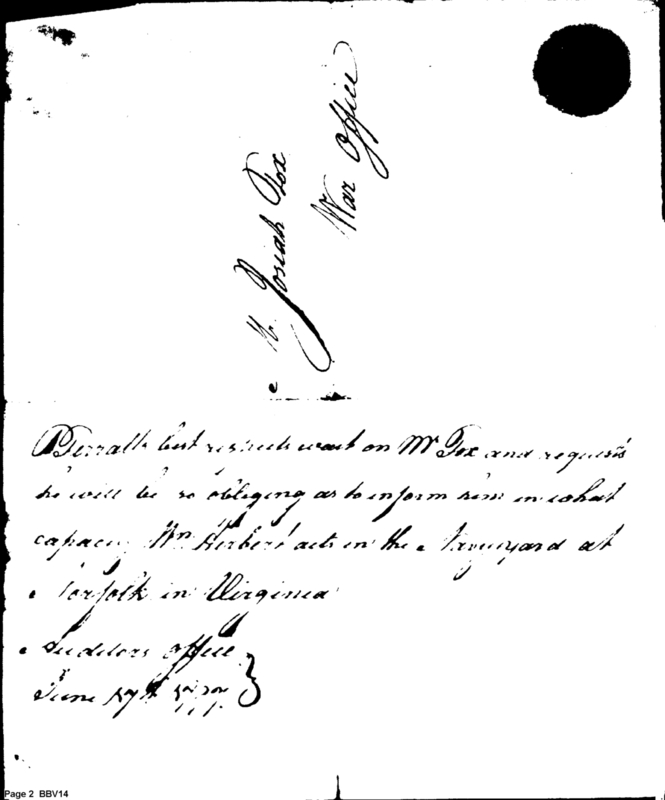 Mr. Josiah Fox
War Office
Ferralls best respects wait on Mr Fox and requests
he will be so obliging as to inform him in what
capacity Wm Herbert acts in the Navy yard at
Norfolk in Virginia
Auditors Office
June 17th
Page 2 BBV14